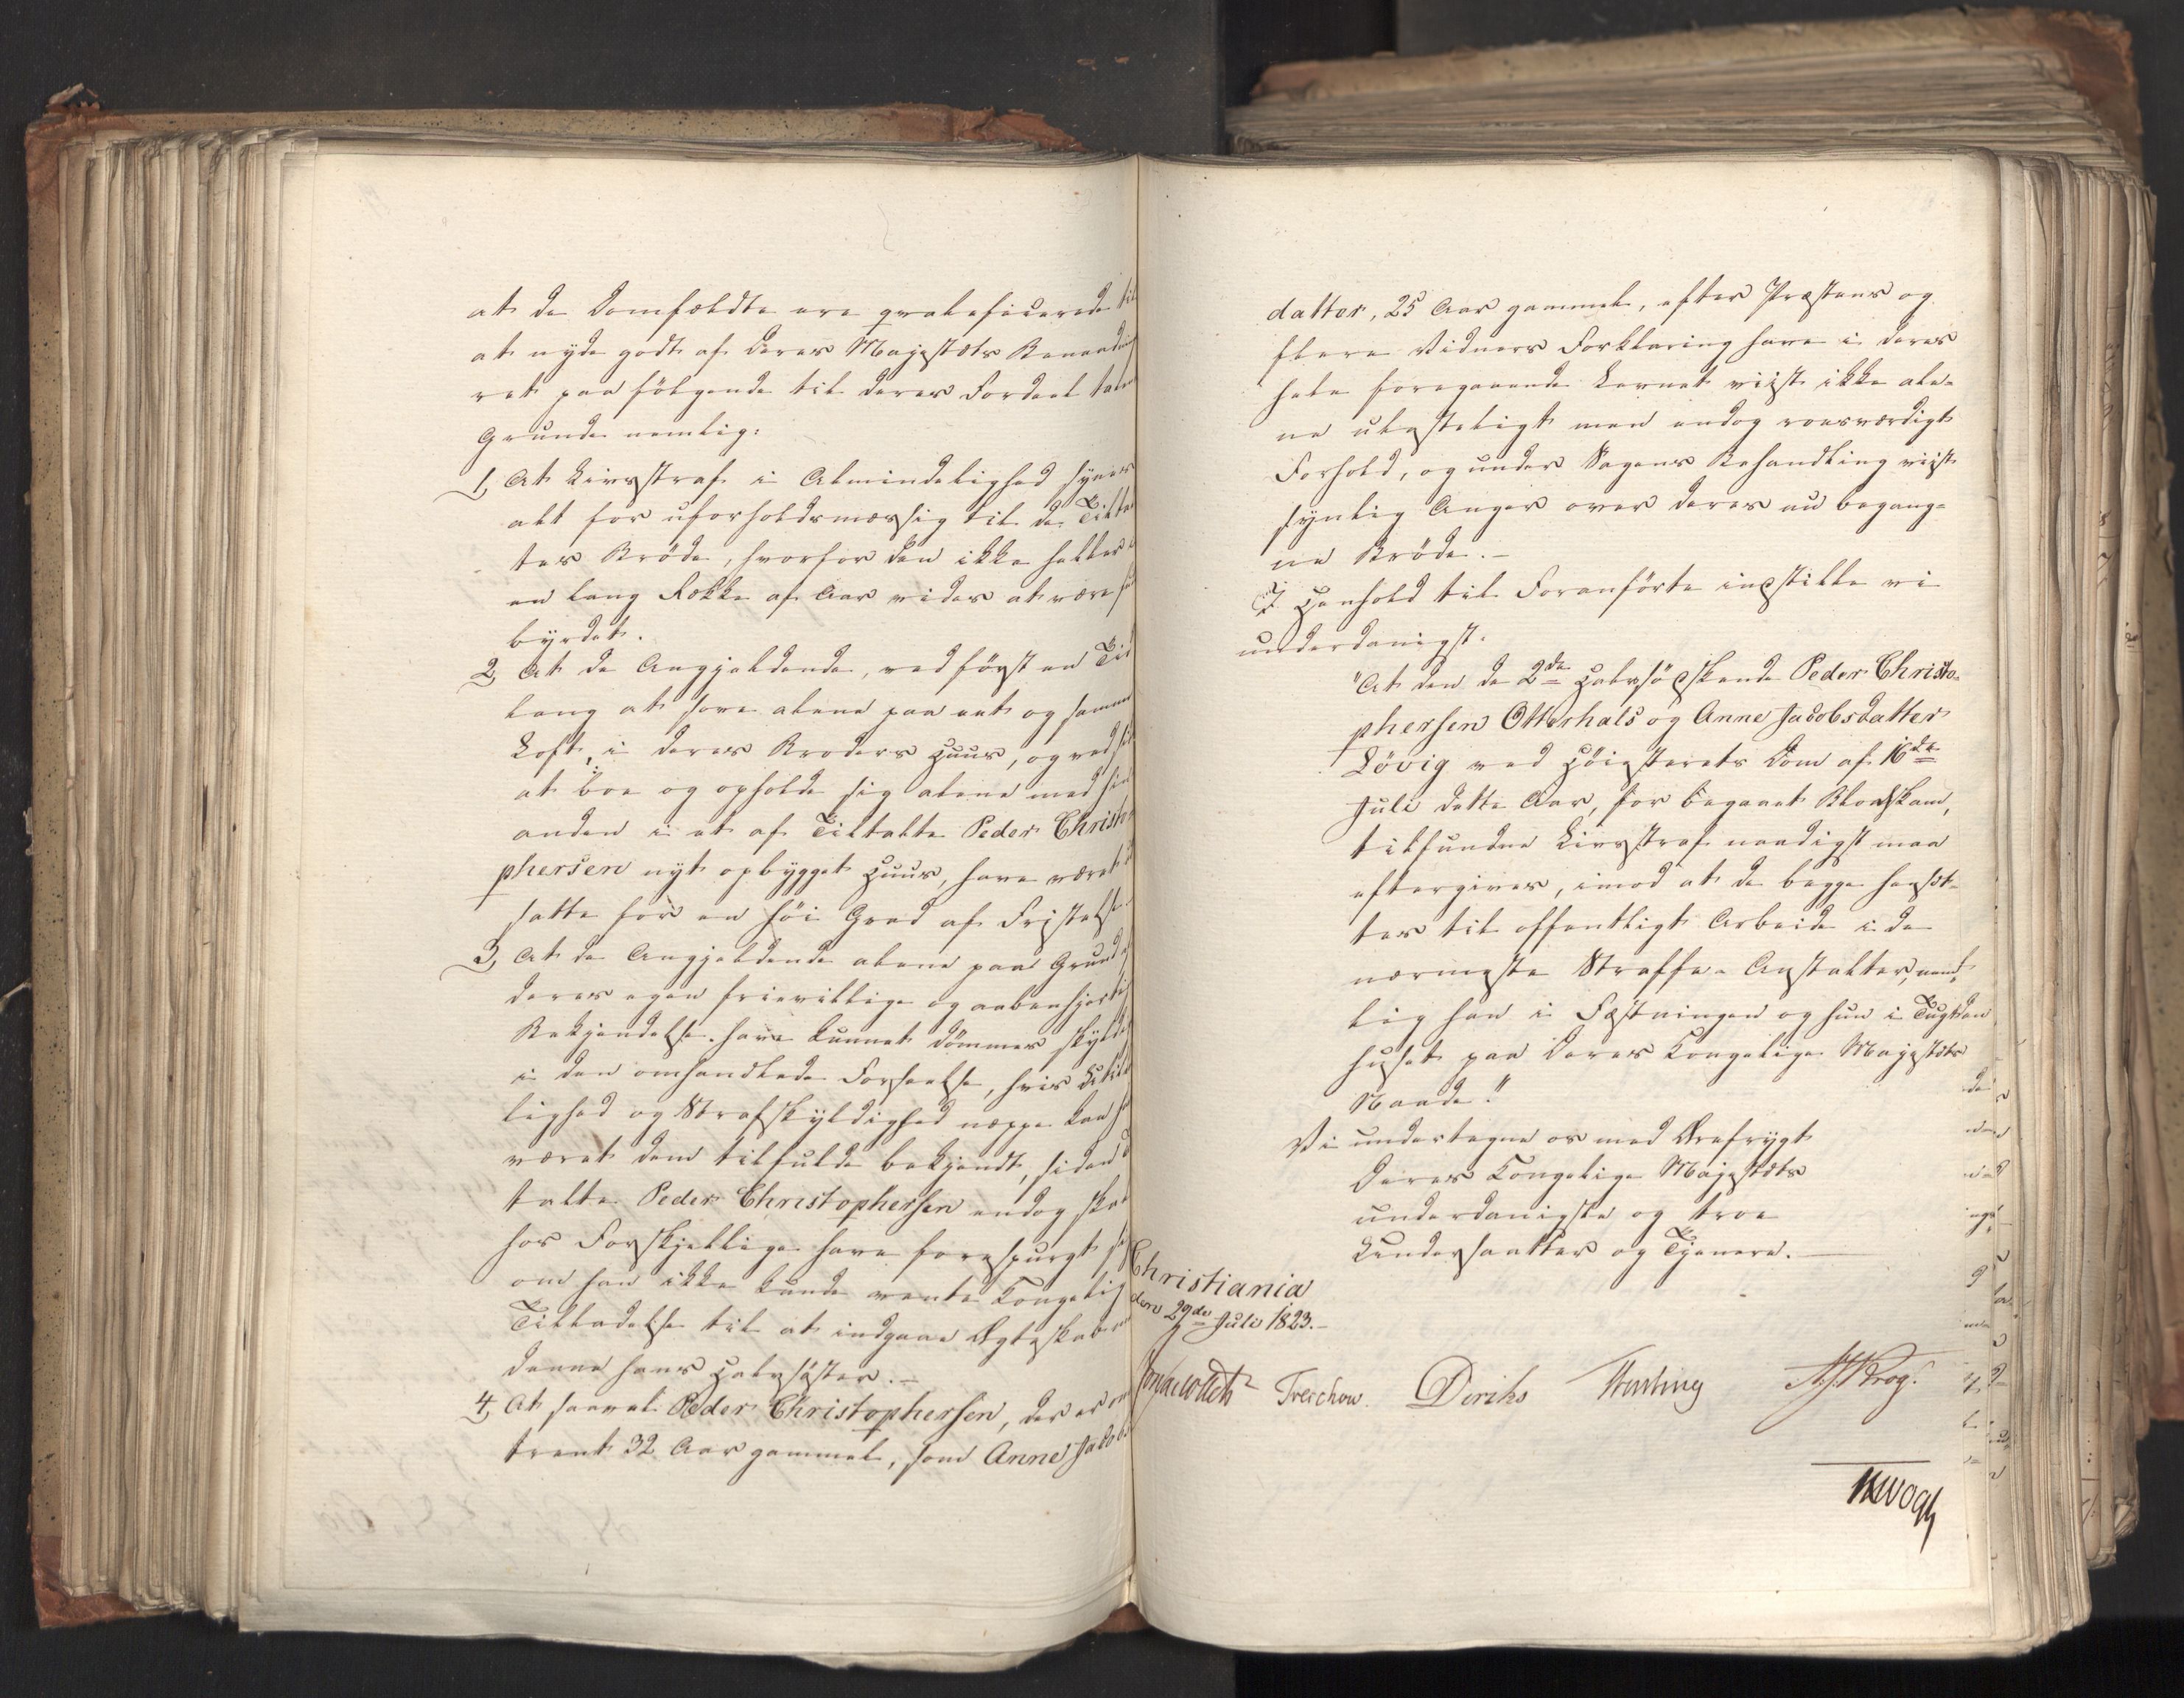 at de Domfældte ere qvalificerede til
at nyde godt af Deres Majestæts Benaadnings
ret paa følgende til deres Fordeel talende
Grunde nemlig:
1, At Livsstraf i Almindelighed synes
alt for uforholdsmæssig til de Tiltal
tes Brøde, hvorfor den ikke heller i
en lang Række af Aar vides at være fuld
byrdet.
2, At de Angjeldende, ved først en Tid
lang at sove alene paa eet og samme
Loft, i deres Broders Huus, og ved siden
at boe og opholde sig alene med hin
anden i et af Tiltalte Peder Christo
phersen nyt opbygget Huus, have været ud
satte for en høi Grad af Fristelse.
3, At de Angjeldende alene paa Grund af
deres egen frievillige og aabenhjertige
Bekjendelse have kunnet dømmes skyldige
i den omhandlede Forseelse, hvis Util
lighed og Strafskyldighed neppe kan have
været dem tilfulde bekjendt, siden Til
talte Peder Christophersen endog skal
hos Forskjellige have forespurgt sig
om han ikke kunde vente Kongelig
Tilladelse til at indgaae Ægteskab med
denne hans Halvsøster.-
4, At saavel Peder Christophersen, der er om
trent 32 Aar gammel, som Anne Jacobs
datter, 25 Aar gammel, efter Præstens og
flere Vidners Forklaring have i deres
hele foregaaende Levnet viist ikke ale-
ne ulasteligt men endog roesværdigt
Forhold, og under Sagens Behandling viist
synlig Anger over deres nu begang-
ne Brøde.-
I Henhold til Foranførte indstille vi
underdanigst:
"At den de 2de Halvsødskende Peder Christo-
phersen Otterhals og Anne Jacobsdatter
Løvig ved Høiesterets Dom af 16de
Juli dette Aar, for begaaet Blodskam,
tilfundne Livsstraf naadigst maa
eftergives, imod at de begge hensæt-
tes til offentligt Arbeide i de
nærmeste Straffe-Anstalter, nem-
lig han i Fæstningen og hun i Tugt-
huset paa Deres Kongelige Majestæts
Naade."
Vi undertegne os med Ærefrygt
Deres Kongelige Majestæts
underdanigste og troe
Undersaatter og Tjenere.
Christiania
den 29de Juli 1823.-
Treschow. Diriks